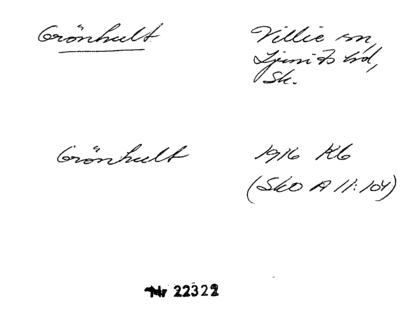 Grönhult
Villie sn,
Ljunits hd,
Sk.
Grönhult
1916 Kb
(SkO A 11:104)
Nr 22322